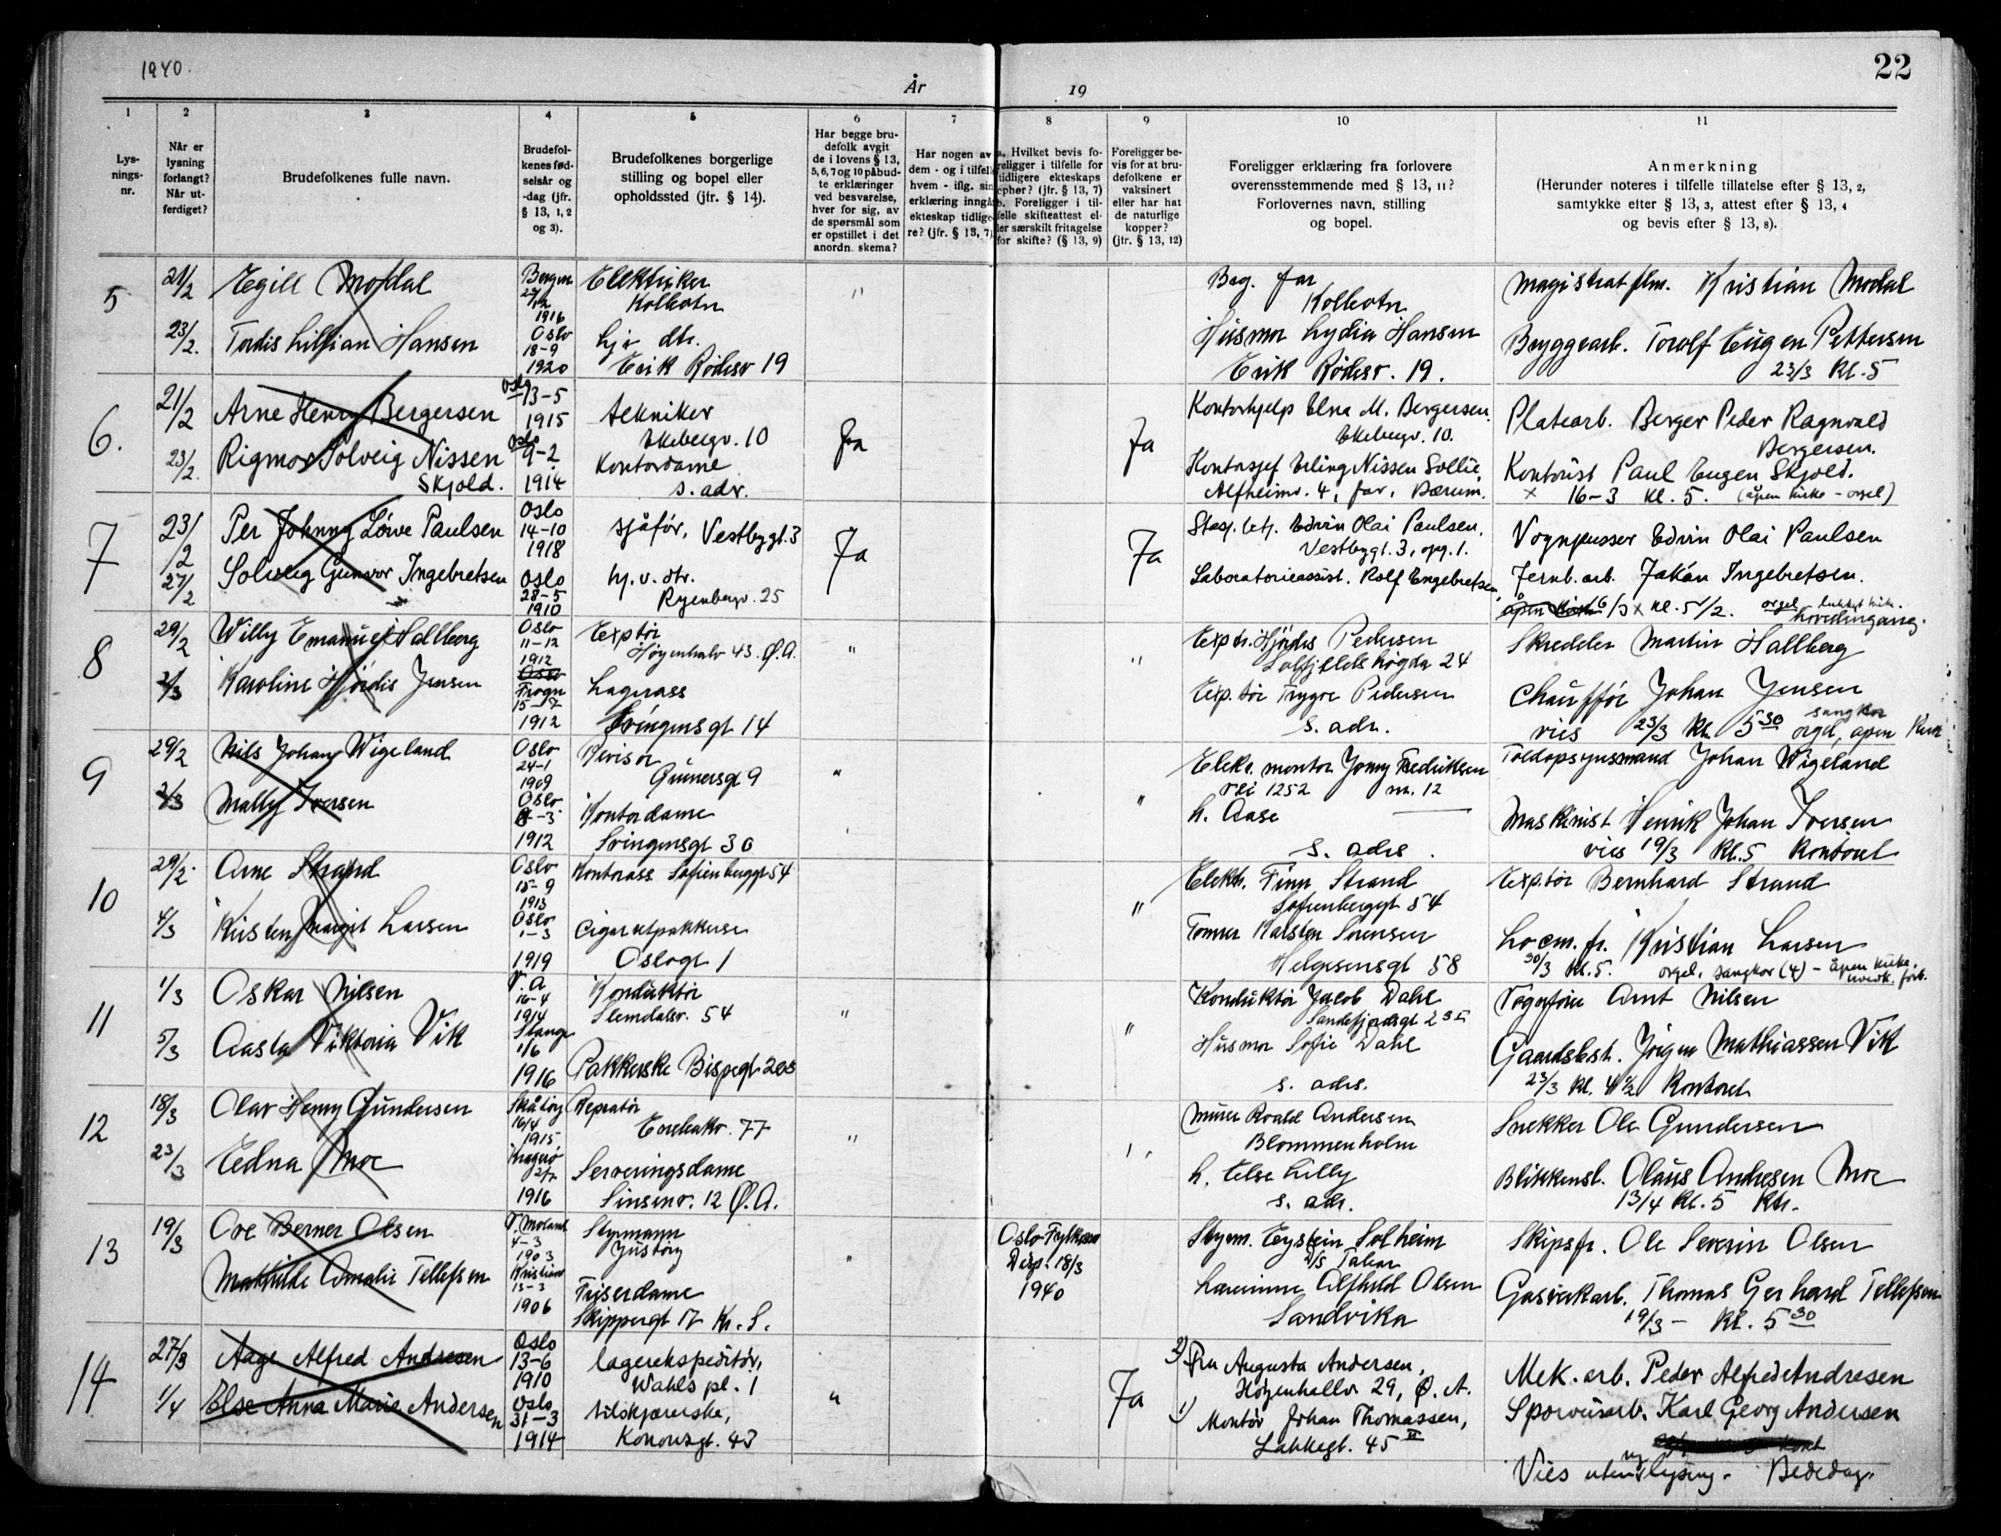 1940.
År
19
22
1
2
3
4
5
6
7
8
9
10
11
Lys-
nings-
nr.
Når er
lysning
forlangt?
Når ut-
ferdiget?
Brudefolkenes fulle navn.
Brudefol-
kenes fød-
selsår og
-dag (jfr.
§ 13, 1, 2
og 3).
Brudefolkenes borgerlige
stilling og bopel eller
opholdssted (jfr. § 14).
Har begge bru-
defolk avgit
de i lovens § 13,
5, 6, 7 og 10 påbud-
te erklæringer
ved besvarelse,
hver for sig, av
de spørsmål som
er opstillet i det
anordn. skema?
Har nogen av
dem - og i tilfelle
hvem - iflg. sin
erklæring inngåt
ekteskap tidlige-
re? (jfr. § 13, 7)
a. Hvilket bevis fo-
religger i tilfelle for
tidligere ekteskaps
ophør? (jfr. § 13, 7)
b. Foreligger i til-
felle skifteattest el-
ler særskilt fritagelse
for skifte? (§ 13, 9)
Foreligger be-
vis for at bru-
defolkene er
vaksinert
eller har hat
de naturlige
kopper?
(jfr. § 13, 12)
Foreligger erklæring fra forlovere
overensstemmende med § 13, 11?
Forlovernes navn, stilling
og bopel.
Anmerkning
(Herunder noteres i tilfelle tillatelse efter § 13, 2,
samtykke efter § 13, 3, attest efter § 13, 4
og bevis efter § 13, 8).
5
21/2
Egill Modal
Bergen
1916
Elektriker
Kolbotn
"
Beg. far
Kolbotn
Magistratflm. Kristian Modal
23/2.
Tordis Lillian Hansen
Oslo
18-9
1920
hjv dtr.
Erik Rødesv 19
Husmor Lydia Hansen
Erik Rødesv. 19.
Bryggearb. Torolf Eugen Pettersen
23/3 Kl. 5
6.
21/2
Arne Henry Bergersen
Oslo
13-5
1915
tekniker
Ekebergv. 10
Ja
Ja
Kontorhjelp Elna M. Bergersen.
Ekebergv. 10.
Platearb. Berger Peder Ragnvald
Bergersen.
23/2.
Rigmor Solveig Nissen
Skjold.
Oslo
9-2
1914
Kontordame
s. adr.
Kontorsjef Erling Nissen Sollie
Alfheimv. 4, far, Bærum.
Kontorist Paul Eugen Skjold.
x 16-3 kl. 5. (åpen kirke - orgel)
7
23/2
Per Johnny Löwe Paulsen
Oslo
14-10
1918
sjåför, Vestbygt. 3
Ja
Ja
Stasj. betj. Edvin Olai Paulsen.
Vestbygt. 3, opg. 1.
Vognpusser Edvin Olai Paulsen
27/2
Solveig Gunvor Ingebretsen
Oslo
28-5
1910
hj. v. dtr.
Ryenbergv. 25
Laboratorieassist. Rolf Engebretsen,
Jernb. arb. Jakån Ingebretsen.
16/3 x kl. 5 1/2. orgel
hovedinngang.
8
29/2
Willy Emanuel Hallberg
Oslo
11-12
1912
Exptör
Høyenhalv 43. Ø.A.
"
"
Exptr. Hjördis Pedersen
Solfjellshøgda 24
Skredder Martin Hallberg
2/3
Karoline Hjördis Jensen
Oslo
Frogn
1912
Lagerass
Svingensgt 14
Exp.tör Trygve Pedersen
s. adr.
Chauffør Johan Jensen
vies 23/3 Kl. 5 30 orgel, åpen Kirke
sangkor
9
29/2
Nils Johan Wigeland
Oslo
24-1
1909
Revisor
Gunnersgt 9
"
"
Elekr. montør Jonny Fredriksen
vei 1252 nr. 12
Toldopsynsmand Johan Wigeland
2/3
Mally Iversen
Oslo
1912
Kontordame
Svingensgt 30
h. Aase
s. adrs.
Maskinist Henrik Johan Iversen
vies 19/3 Kl. 5 Kontoret
10
29/2.
Arne Strand
Oslo
15-9
1913
Kontorass Sofienberggt 54
"
Elektr. Finn Strand
Sofienberggt 54
Exp.tør Bernhard Strand
4/3
Kirsten Margit Larsen
Oslo
1-3
1919
Cigarutpakkerske
Oslogt 1
Tomrer Karsten Sørensen
Helgesensgt 58
Locm. fr. Kristian Larsen
30/3 Kl. 5. orgel, sangkor (4) - åpen kirke,
11
1/3
Oskar Nilsen
V. A
16-4
1914
Konduktør
Slemdalsv. 54
"
"
Konduktør Jacob Dahl
Sandefjordsgt 2
Vognfører Arnt Nilsen
5/3
Aasta Viktoria Vik
Stange
1/6
1916
Pakkerske Bispegt
Husmor Sofie Dahl
s. adrs.
Gaardsbest. Jörgen Mathiassen Vik
23/3 Kl. 4 1/2 Kontoret
12
18/3
Olav Henry Gundersen
Skåtøy
16/4
1915
Repratør
Enebakv. 77
"
"
Murer Roald Andersen
Blommenholm
Snekker Ole Gundersen
23/3
Edna Moe
Kragerø
1916
Serveringsdame
Sinsenv. 12 Ø.A.
h. Else Lilly
s. adr.
Blikkensl. Olaus Andresen Moe
13/4 Kl. 5 Ktr.
13
19/3
Ove Berner Olsen
V. Moland
4-3
1903
Styrmann
Justøy
"
Oslo Fylkesm
Disp. 18/3
1940
Styrm. Eystein Solheim
D/S Tabor
Skipsfr. Ole Severin Olsen
Mathilde Amalie Tellefsen
Kristians
13-3
1906
Friserdame
Skippergt 17 Kr. S.
Lærerinne Alfhild Olsen
Sandvika
Gasverkarb. Thomas Gerhard Tellefsen
19/3 - Kl. 5 30
14
27/3
Aage Alfred Andresen
Oslo
13-6
1910
lagerekspeditör,
Wahls pl. 1
"
Ja
2) Fru Augusta Andersen,
Høyenhallv 29, Ø. A.
Mek. arb. Peder Alfred Andresen
1/4
Else Anna Marie Andersen
Oslo
31-3
1914
tilskjærerske,
Konowsgt. 43
1) Montör Johan Thomassen,
Lakkegt. 45 II
Sporveisarb. Karl Georg Andersen
Vies uten ny lysing. Bededag.